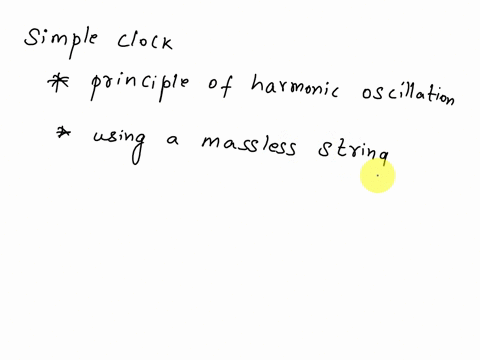 Simple clock
* principle of harmonic oscillation
* using a massless string